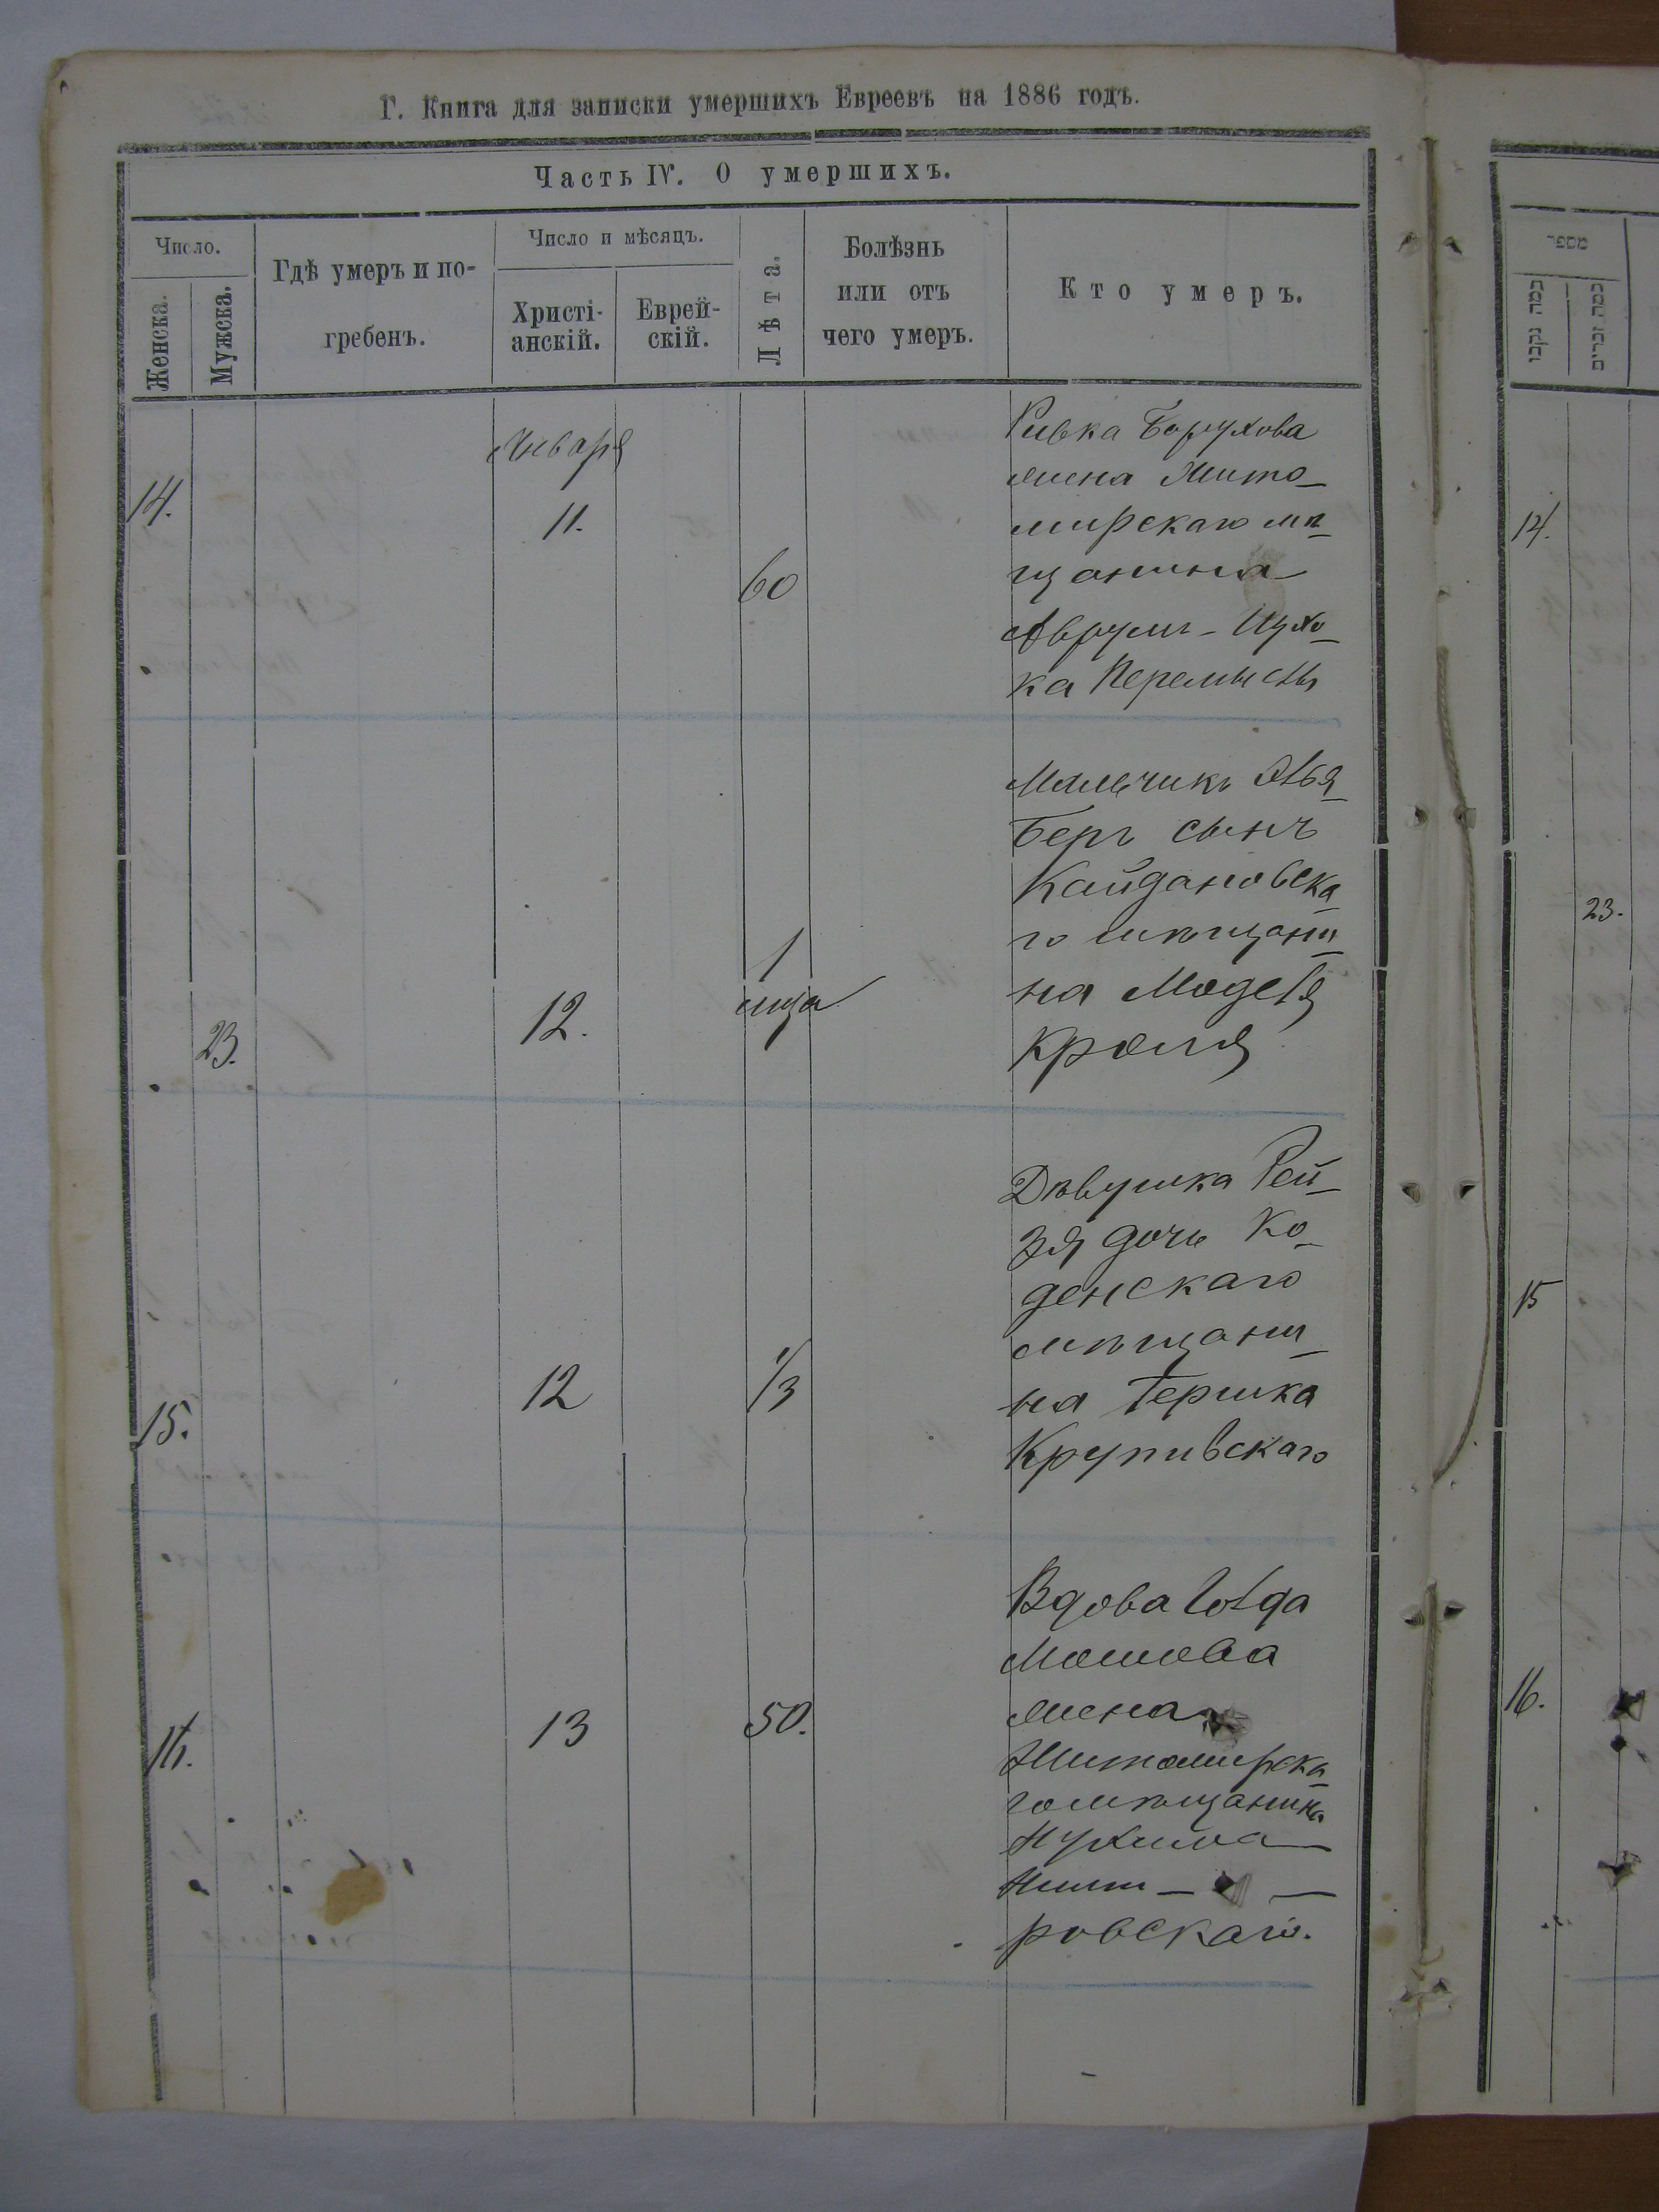 Г. Книга для записки умершихъ Евреевъ на 1886 годъ.
Часть IV. О умершихъ.
Число.
Женска.
Мужска.
Гдѣ умеръ и по-
гребенъ.
Число и мѣсяцъ.
Христі-
анскій.
Еврей-
скій.
Лѣта.
Болѣзнь
или отъ
чего умеръ.
Кто умеръ.
14.
Января
11.
60
Ривка Борухова
жена Жито-
мирскаго мѣ-
щанина
Аврумъ-Ицхо-
ка
23.
12.
1
мца
Мальчикъ
Беръ сынъ
Кайдановска-
го мѣщани-
на
Кроля
15.
12
1/3
Дѣвушка Рей-
зя дочь Ко-
денскаго
мѣщани-
на Гершка
Крупивскаго
16.
13
50.
Вдова Голда
Мошкова
жена
Житомирска-
го мѣщанина
Нухима
ровскаго.
14.
23.
15
16.